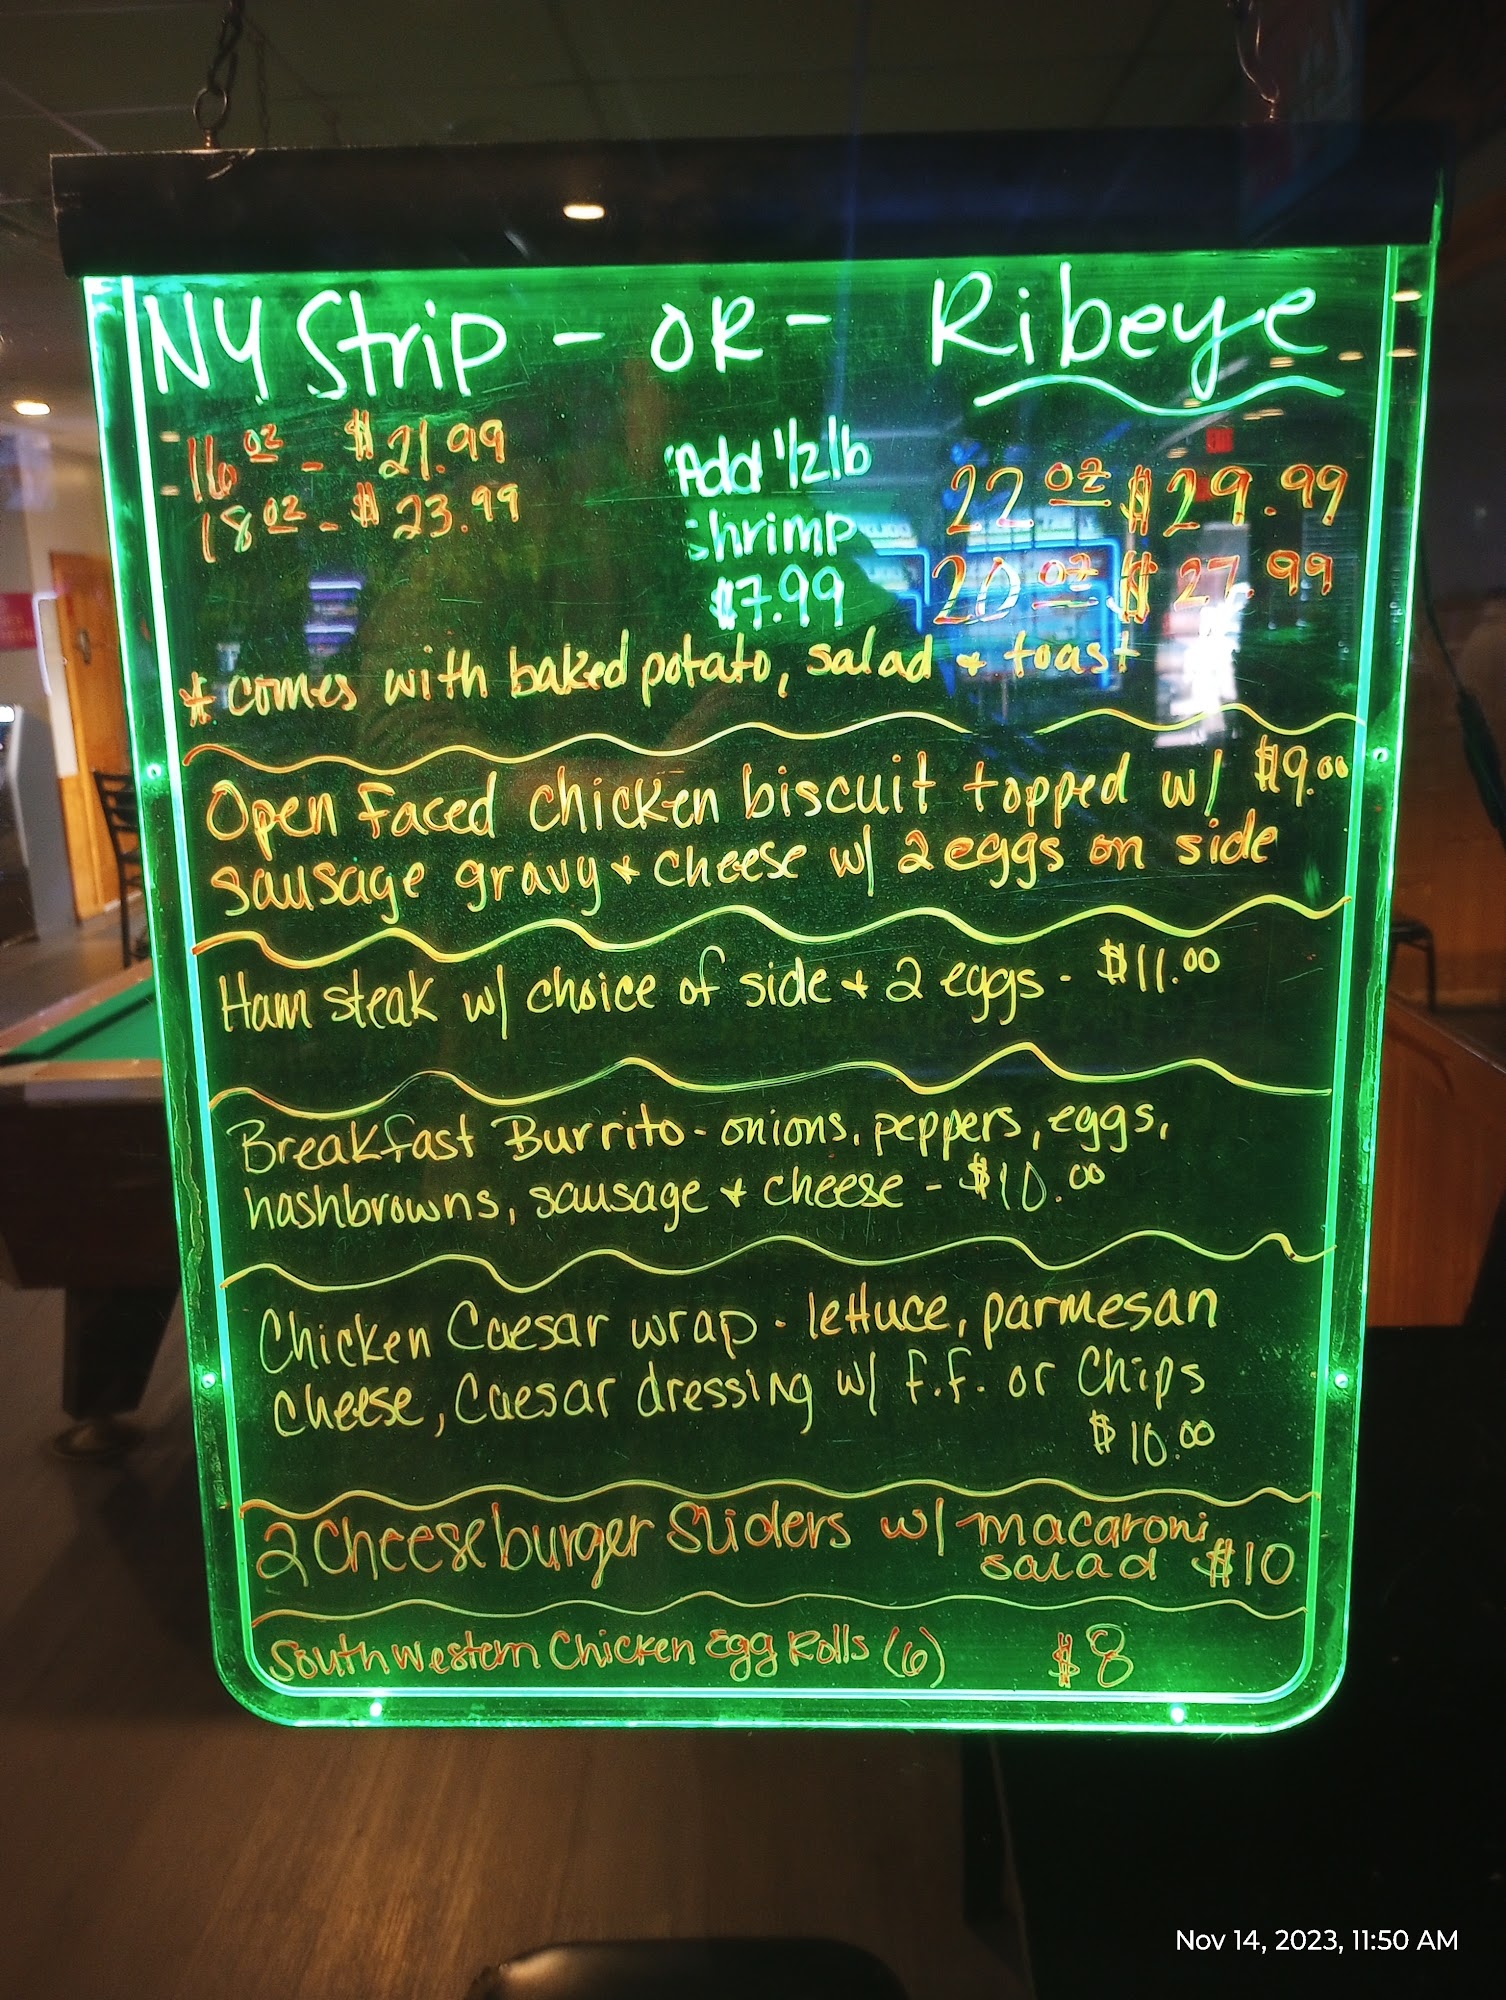 NY Strip - OR - Ribeye
16 oz - $21.99
18 oz - $23.99
Add 1/2 lb
Shrimp
$7.99
22 oz $29.99
20 oz $27.99
* comes with baked potato, salad + toast
Open Faced chicken biscuit topped w/ $9.00
sausage gravy + cheese w/ 2 eggs on side
Ham steak w/ choice of side + 2 eggs - $11.00
Breakfast Burrito - onions, peppers, eggs,
hashbrowns, sausage + cheese - $10.00
Chicken Caesar wrap - lettuce, parmesan
cheese, Caesar dressing w/ f.f. or Chips
$10.00
2 Cheeseburger Sliders w/ macaroni
salad $10
Southwestern Chicken Egg Rolls (6) $8
Nov 14, 2023, 11:50 AM